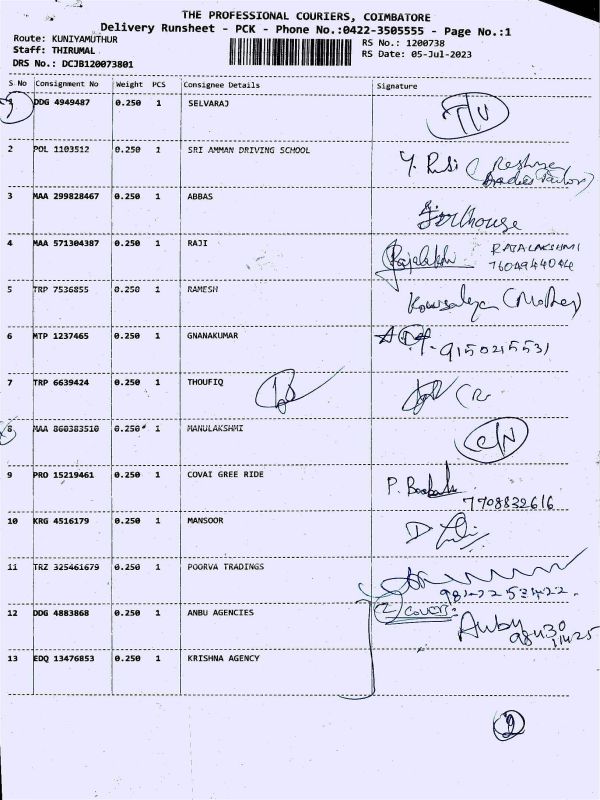 THE PROFESSIONAL COURIERS, COIMBATORE
Delivery Runsheet - PCK - Phone No.:0422-3505555 - Page No.:1
Route: KUNIYAMUTHUR RS No.: 1200738
Staff: THIRUMAL RS Date: 05-Jul-2023
DRS No.: DCJB120073801
S No Consignment No Weight PCS Consignee Details Signature
1 DDG 4949487 0.250 1 SELVARAJ
2 POL 1103512 0.250 1 SRI AMMAN DRIVING SCHOOL
3 MAA 299828467 0.250 1 ABBAS
4 MAA 571304387 0.250 1 RAJI Rajalakshmi RAJALAKSHMI
7604944044
5 TRP 7536855 0.250 1 RAMESH Kowsalya (Mother)
6 MTP 1237465 0.250 1 GNANAKUMAR 9150215531
7 TRP 6639424 0.250 1 THOUFIQ
8 MAA 860383510 0.250 1 MANULAKSHMI
9 PRO 15219461 0.250 1 COVAI GREE RIDE
7708832616
10 KRG 4516179 0.250 1 MANSOOR
11 TRZ 325461679 0.250 1 POORVA TRADINGS
12 DDG 4883868 0.250 1 ANBU AGENCIES 2 COVER
Anbu 98430
11425
13 EDQ 13476853 0.250 1 KRISHNA AGENCY
2